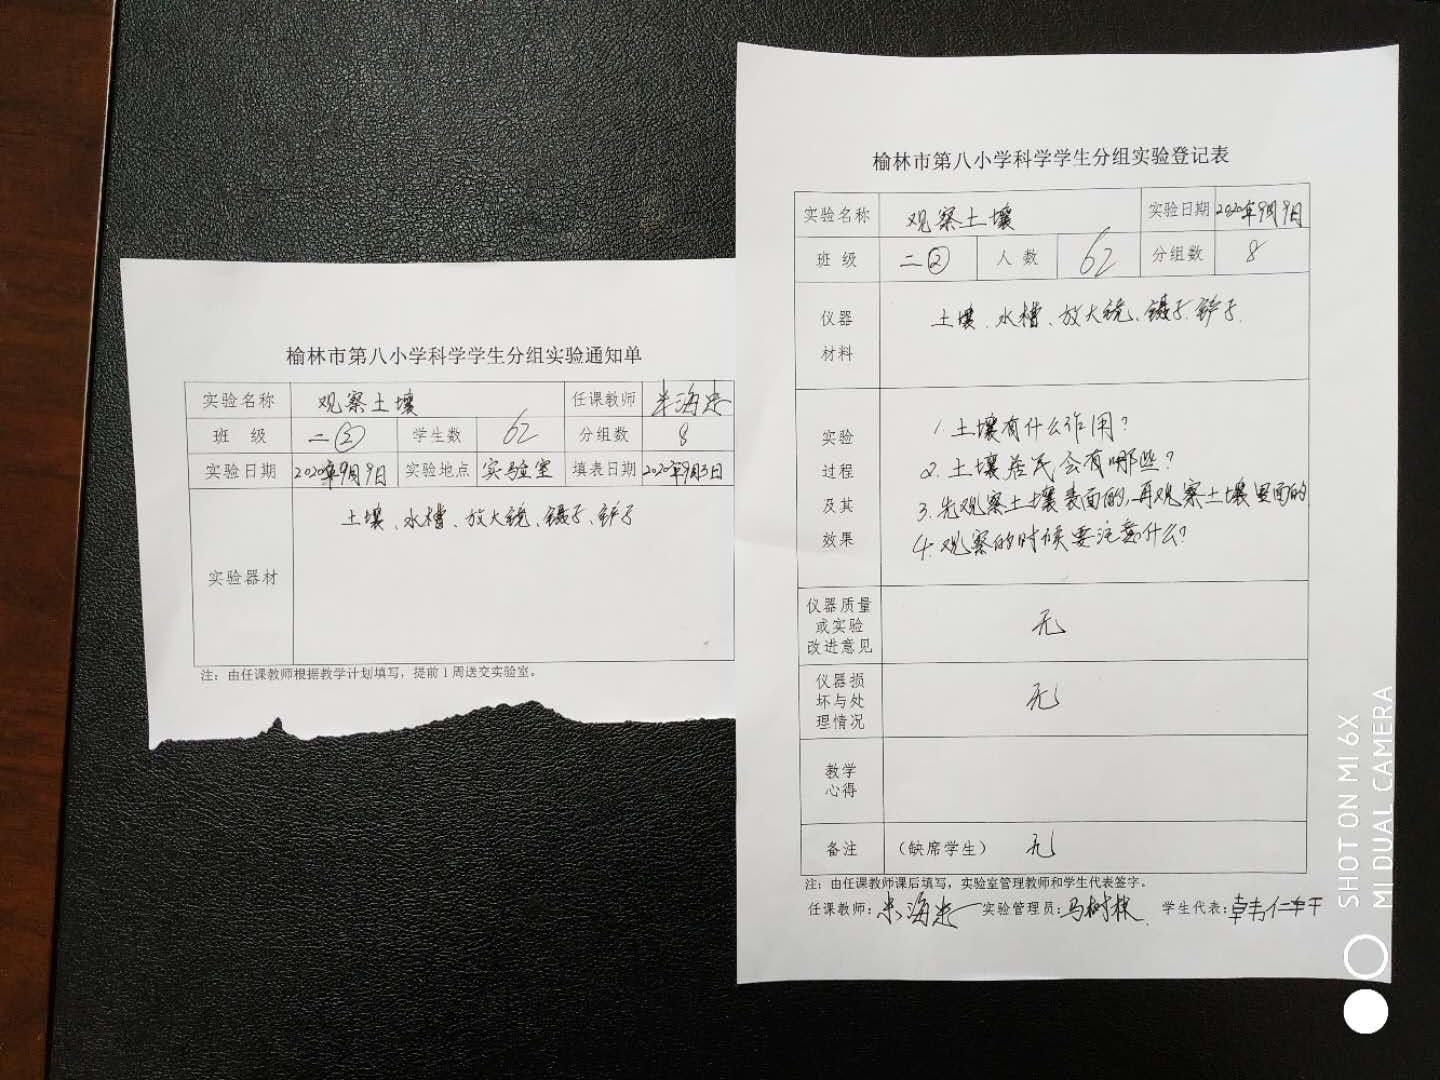 榆林市第八小学科学学生分组实验通知单
实验名称 观察土壤 任课教师
班 级 二② 学生数 62 分组数 8
实验日期 2020年9月9日 实验地点 实验室 填表日期 2020年9月3日
实验器材 土壤、水槽、放大镜、镊子、铲子
注：由任课教师根据教学计划填写，提前1周送交实验室。
榆林市第八小学科学学生分组实验登记表
实验名称 观察土壤 实验日期 2020年9月9日
班 级 二② 人 数 62 分组数 8
仪器材料 土壤、水槽、放大镜、镊子、铲子.
实验过程及其效果
1.土壤有什么作用？
2.土壤居民会有哪些？
3.先观察土壤表面的,再观察土壤里面的
4.观察的时候要注意什么？
仪器质量或实验改进意见 无
仪器损坏与处理情况 无
教学心得
备注 （缺席学生） 无
注：由任课教师课后填写，实验室管理教师和学生代表签字。
任课教师： 实验管理员：马树林 学生代表：
SHOT ON MI 6X
MI DUAL CAMERA